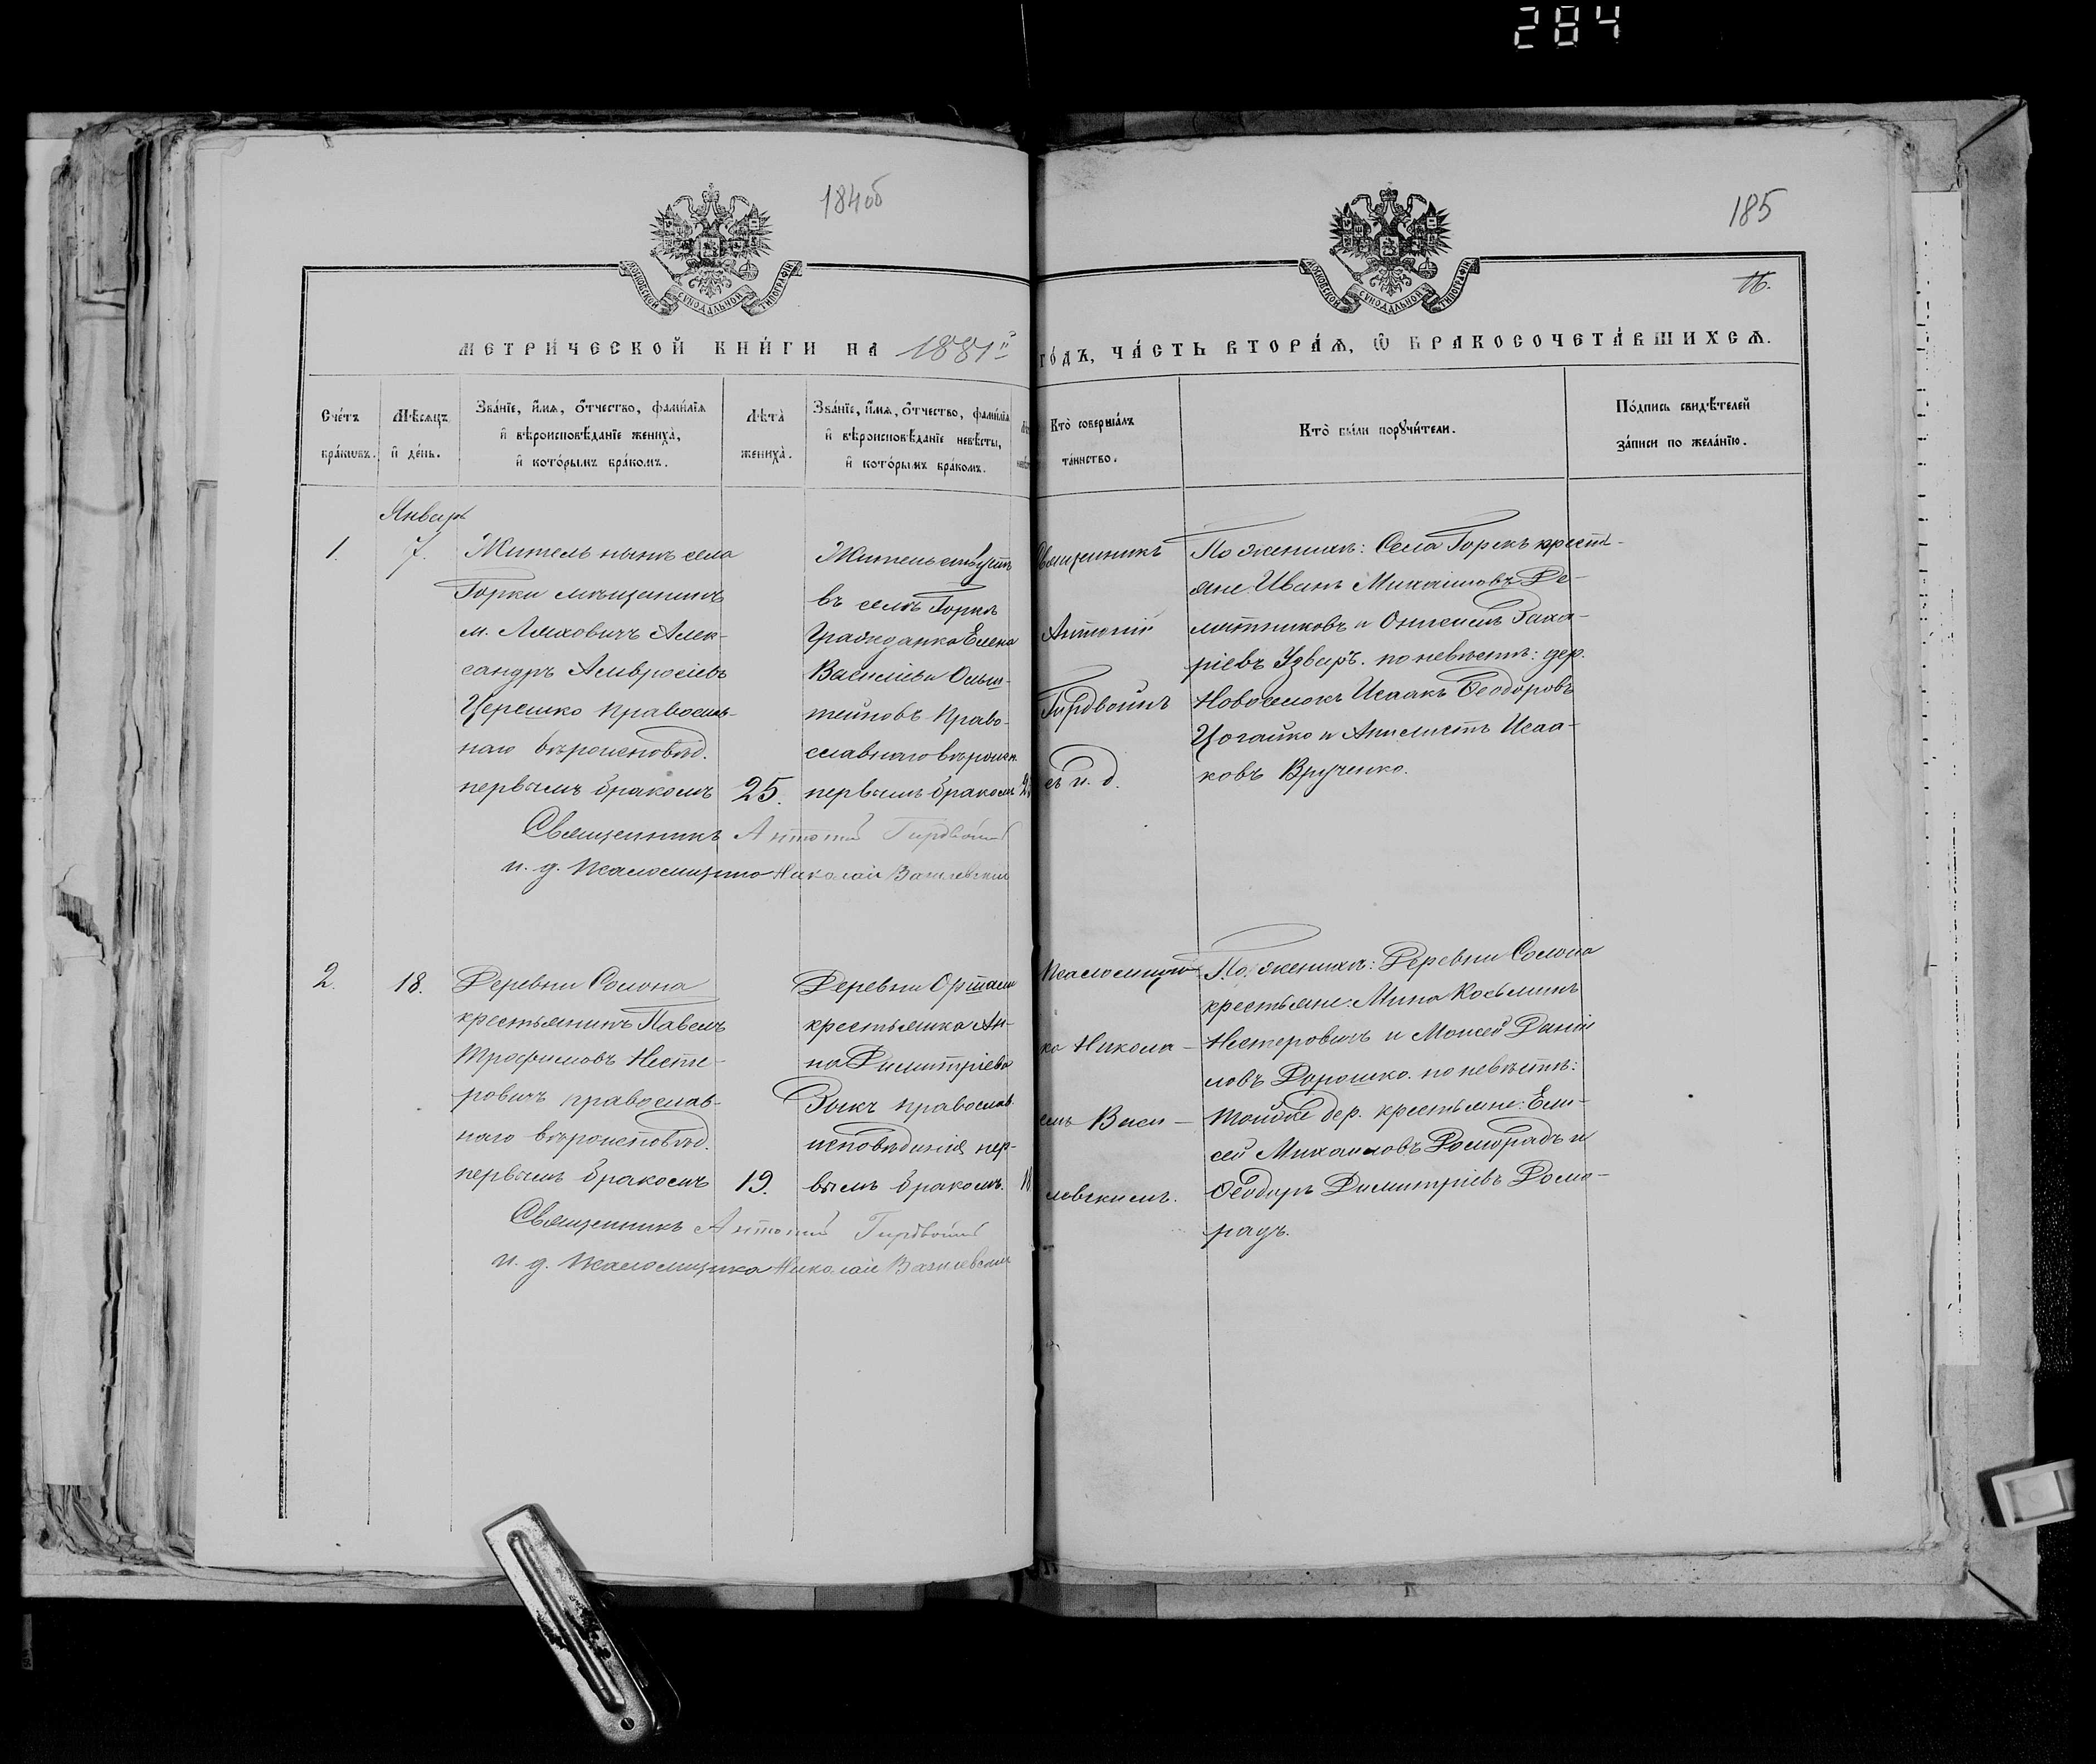 284
184об
185
16.
МОСКОВСКОЙ СУНОДАЛЬНОЙ ТИПОГРАФІИ
МОСКОВСКОЙ СУНОДАЛЬНОЙ ТИПОГРАФІИ
МЕТРИ́ЧЕСКОЙ КНИ́ГИ НА 1881й
ГО́ДЪ, ЧА́СТЬ ВТОРА́Ѧ, Ѽ БРАКОСОЧЕТА́ВШИХСѦ.
Сче́тъ бра́кѡвъ.
Мѣ́сѧцъ и҆ де́нь.
Зва́нїе, и҆́мѧ, ѻ҆́тчество, фамѝлїѧ
и҆ вѣроисповѣ́данїе жениха̀,
и҆ кото́рымъ бра́комъ.
Лѣ́та жениха̀.
Зва́нїе, и҆́мѧ, ѻ҆́тчество, фамѝлїѧ
и҆ вѣроисповѣ́данїе невѣ́сты,
и҆ кото́рымъ бра́комъ.
Кто̀ соверша́лъ
та́инство.
Кто̀ бы́ли порꙋчи́тели.
По́дпись свидѣ́телей
за́писи по жела́нїю.
Январь
1.
7.
Житель нынѣ села
Горки мѣщанинъ
м. Ляховичъ Алек-
сандръ Амвросіевъ
Черешко православ-
наго вѣроисповѣд.
первымъ бракомъ
25.
Жительствуетъ
въ селѣ Горкѣ
гражданка Елена
Василіева
право-
славнаго вѣроисп.
первымъ бракомъ
Священникъ
Антоній
Гирдвоинъ
съ и. д.
По женихѣ: Села Горекъ кресть-
яне Иванъ Михаиловъ Ре-
матниковъ и Онисимъ Заха-
ріевъ Узваръ. по невѣстѣ: дер.
Новоселокъ Исаакъ Ѳеодоровъ
Цогайко и Исаа-
ковъ Врученко.
Священникъ Антоній Гирдвоинъ
и. д. псаломщика Николай Василевскій
2.
18.
Деревни Солона
крестьянинъ Павелъ
Трофимовъ Несте-
ровичъ православ-
наго вѣроисповѣд.
первымъ бракомъ
19.
Деревни
крестьянка Ан-
на Димитріева
Зыкъ православ.
исповѣданія пер-
вымъ бракомъ.
18
псаломщи-
ка Никола-
емъ Васи-
левскимъ.
По женихѣ: Деревни Солона
крестьяне: Мина Косьминъ
Нестеровичъ и Моисей Даніи
ловъ Дорошко. по невѣстѣ:
тойже дер. крестьяне: Ели-
сей Михаиловъ Доморадъ и
Ѳеодоръ Димитріевъ Домо-
радъ.
Священникъ Антоній Гирдвоинъ
и. д. псаломщика Николай Василевскій